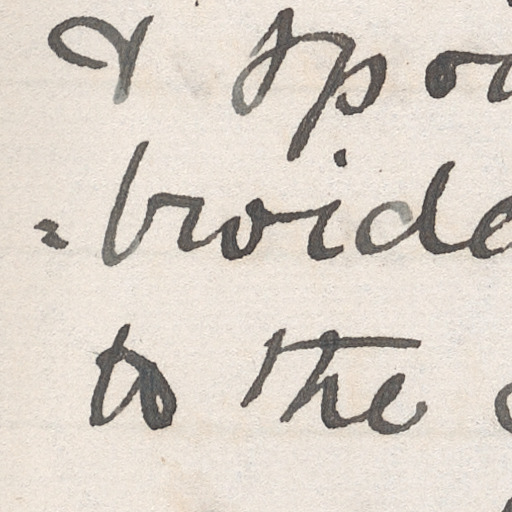 & spo
=broide
to the